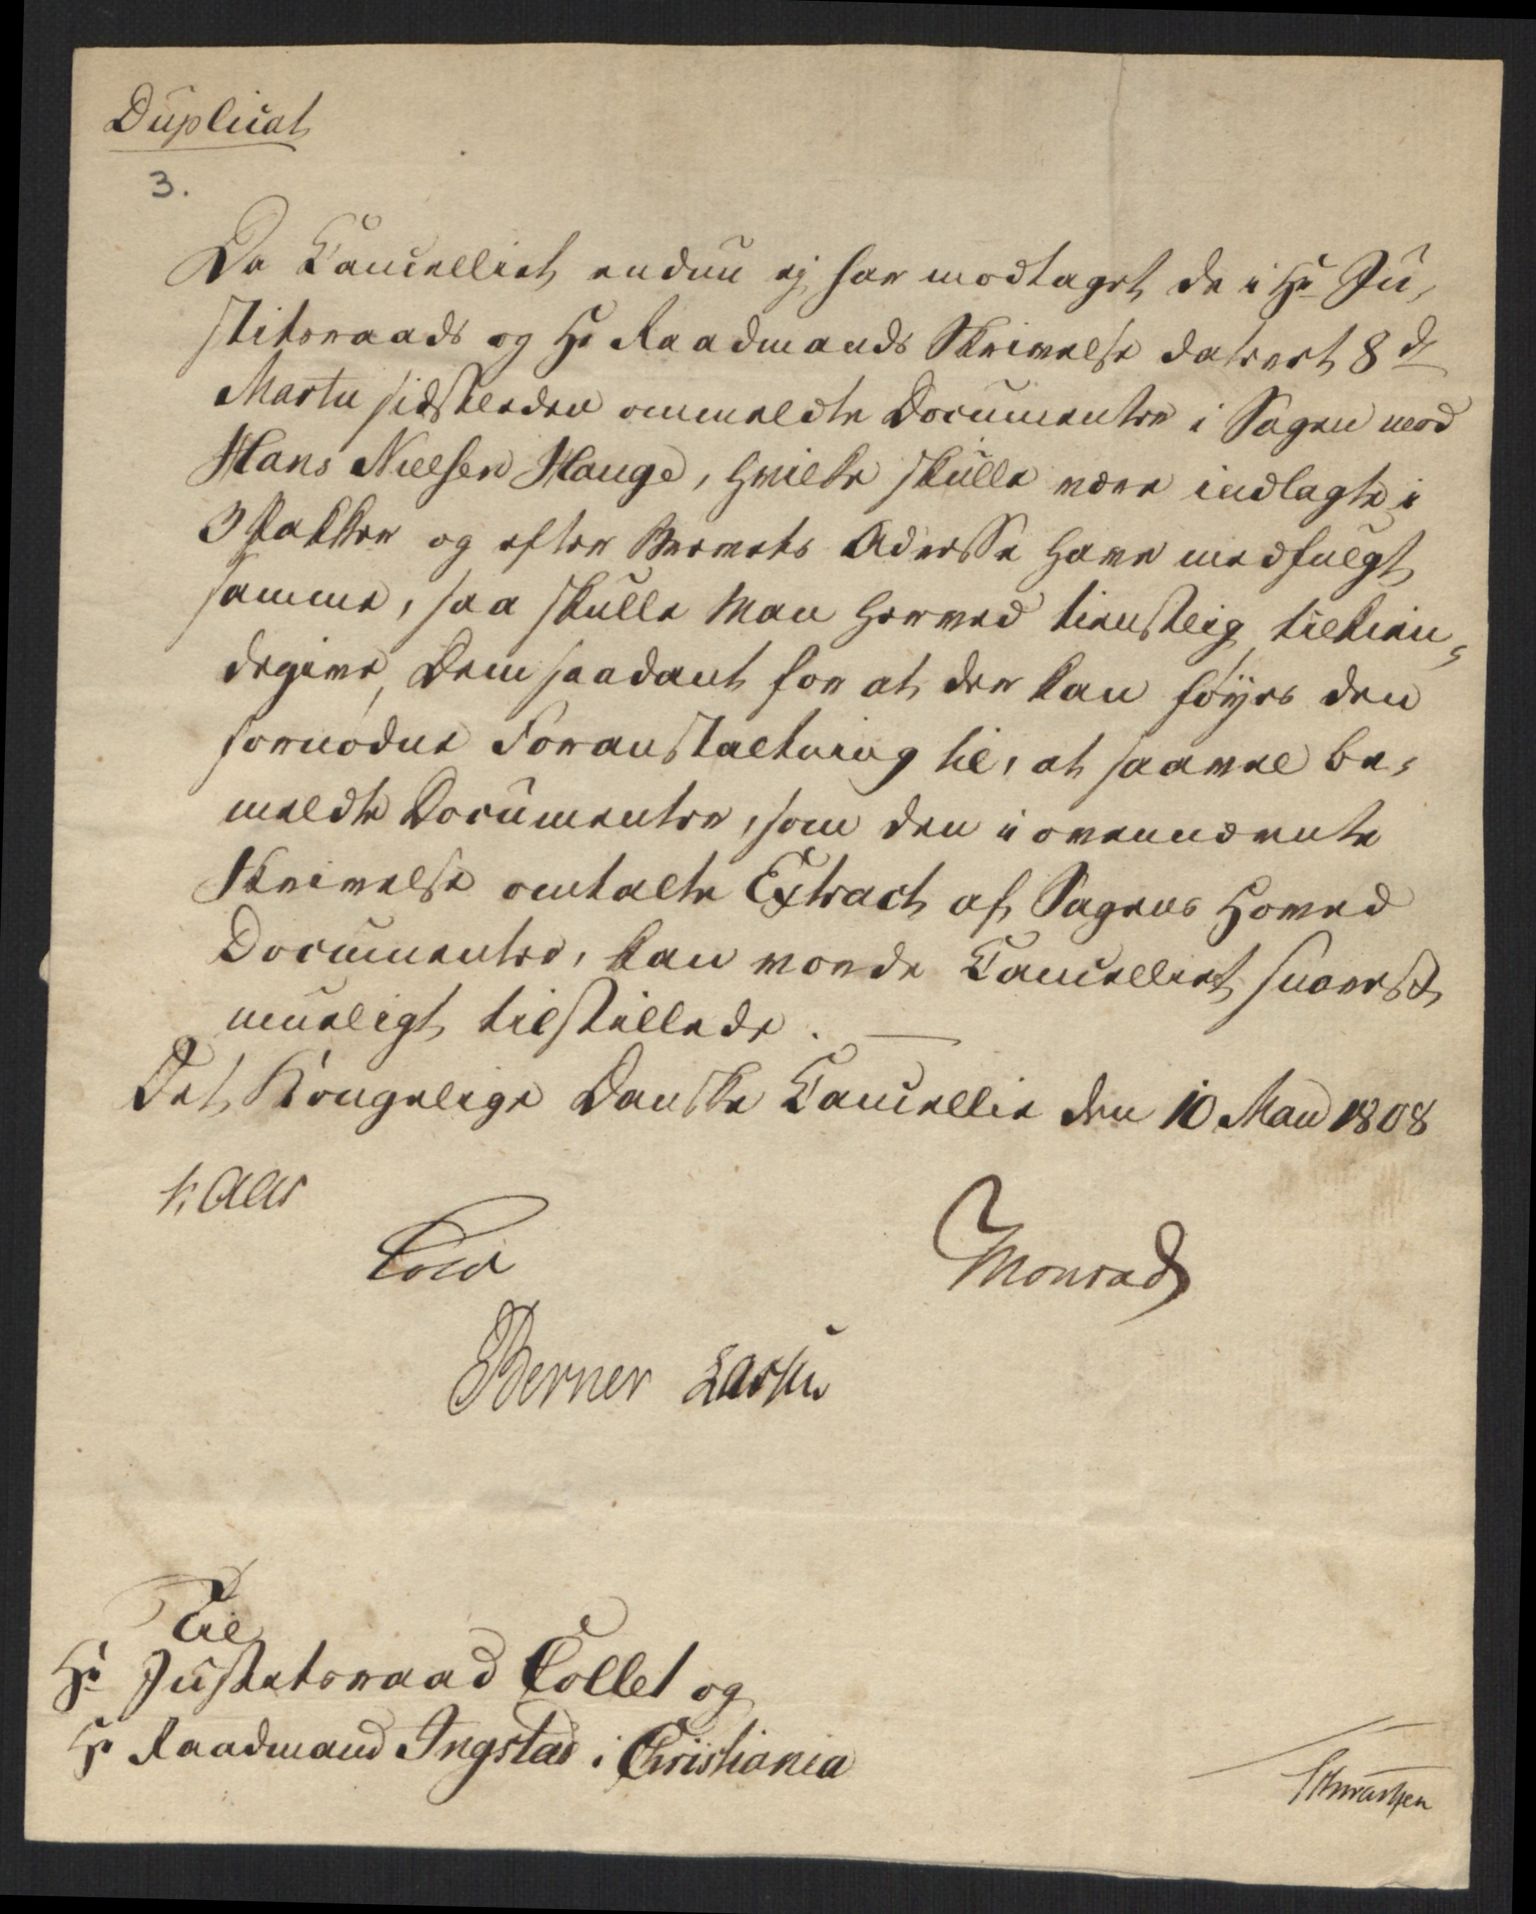 Duplicat
3.
Da Cancelliet endnu ej har modtaget de i Hr Ju,
stitsraads og Hr Raadmands Skrivelse dateret 8 d
Martii sidstleden ommeldte Documenter i Sagen mod
Hans Nielsen Hauge, hvilke skulle være indlagte i
3 Pakker og efter Brevets Adresse have medfulgt
samme, saa skulle Man herved tienstlig tilkien,
degive Dem saadant for at der kan føyes den
fornødne Foranstaltning til, at saavel be,
meldte Documenter, som den i ovennævnte
Skrivelse omtalte Extract af Sagens Hoved
Documenter, kan vorde Cancelliet snarest
mueligt tilstillede.
Det Kongelige Danske Cancellie den 10 Maii 1808
Kaas
Cold
Monrad
Berner Lassen
Til
Hr Justitsraad Collet og
Hr Raadmand Ingstad i Christiania